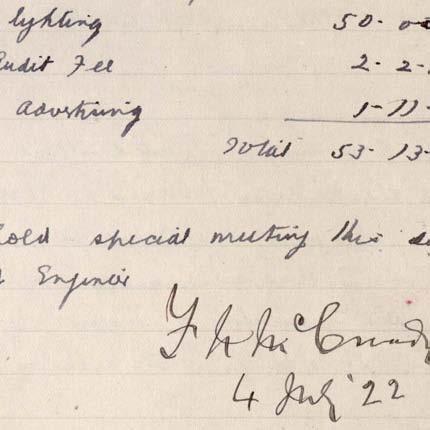 lyhting 50- 00
Audit Fee 2- 2-
Advertising 1- 11-
Total 53- 13-
special meeting this
Engineer
4 July '22